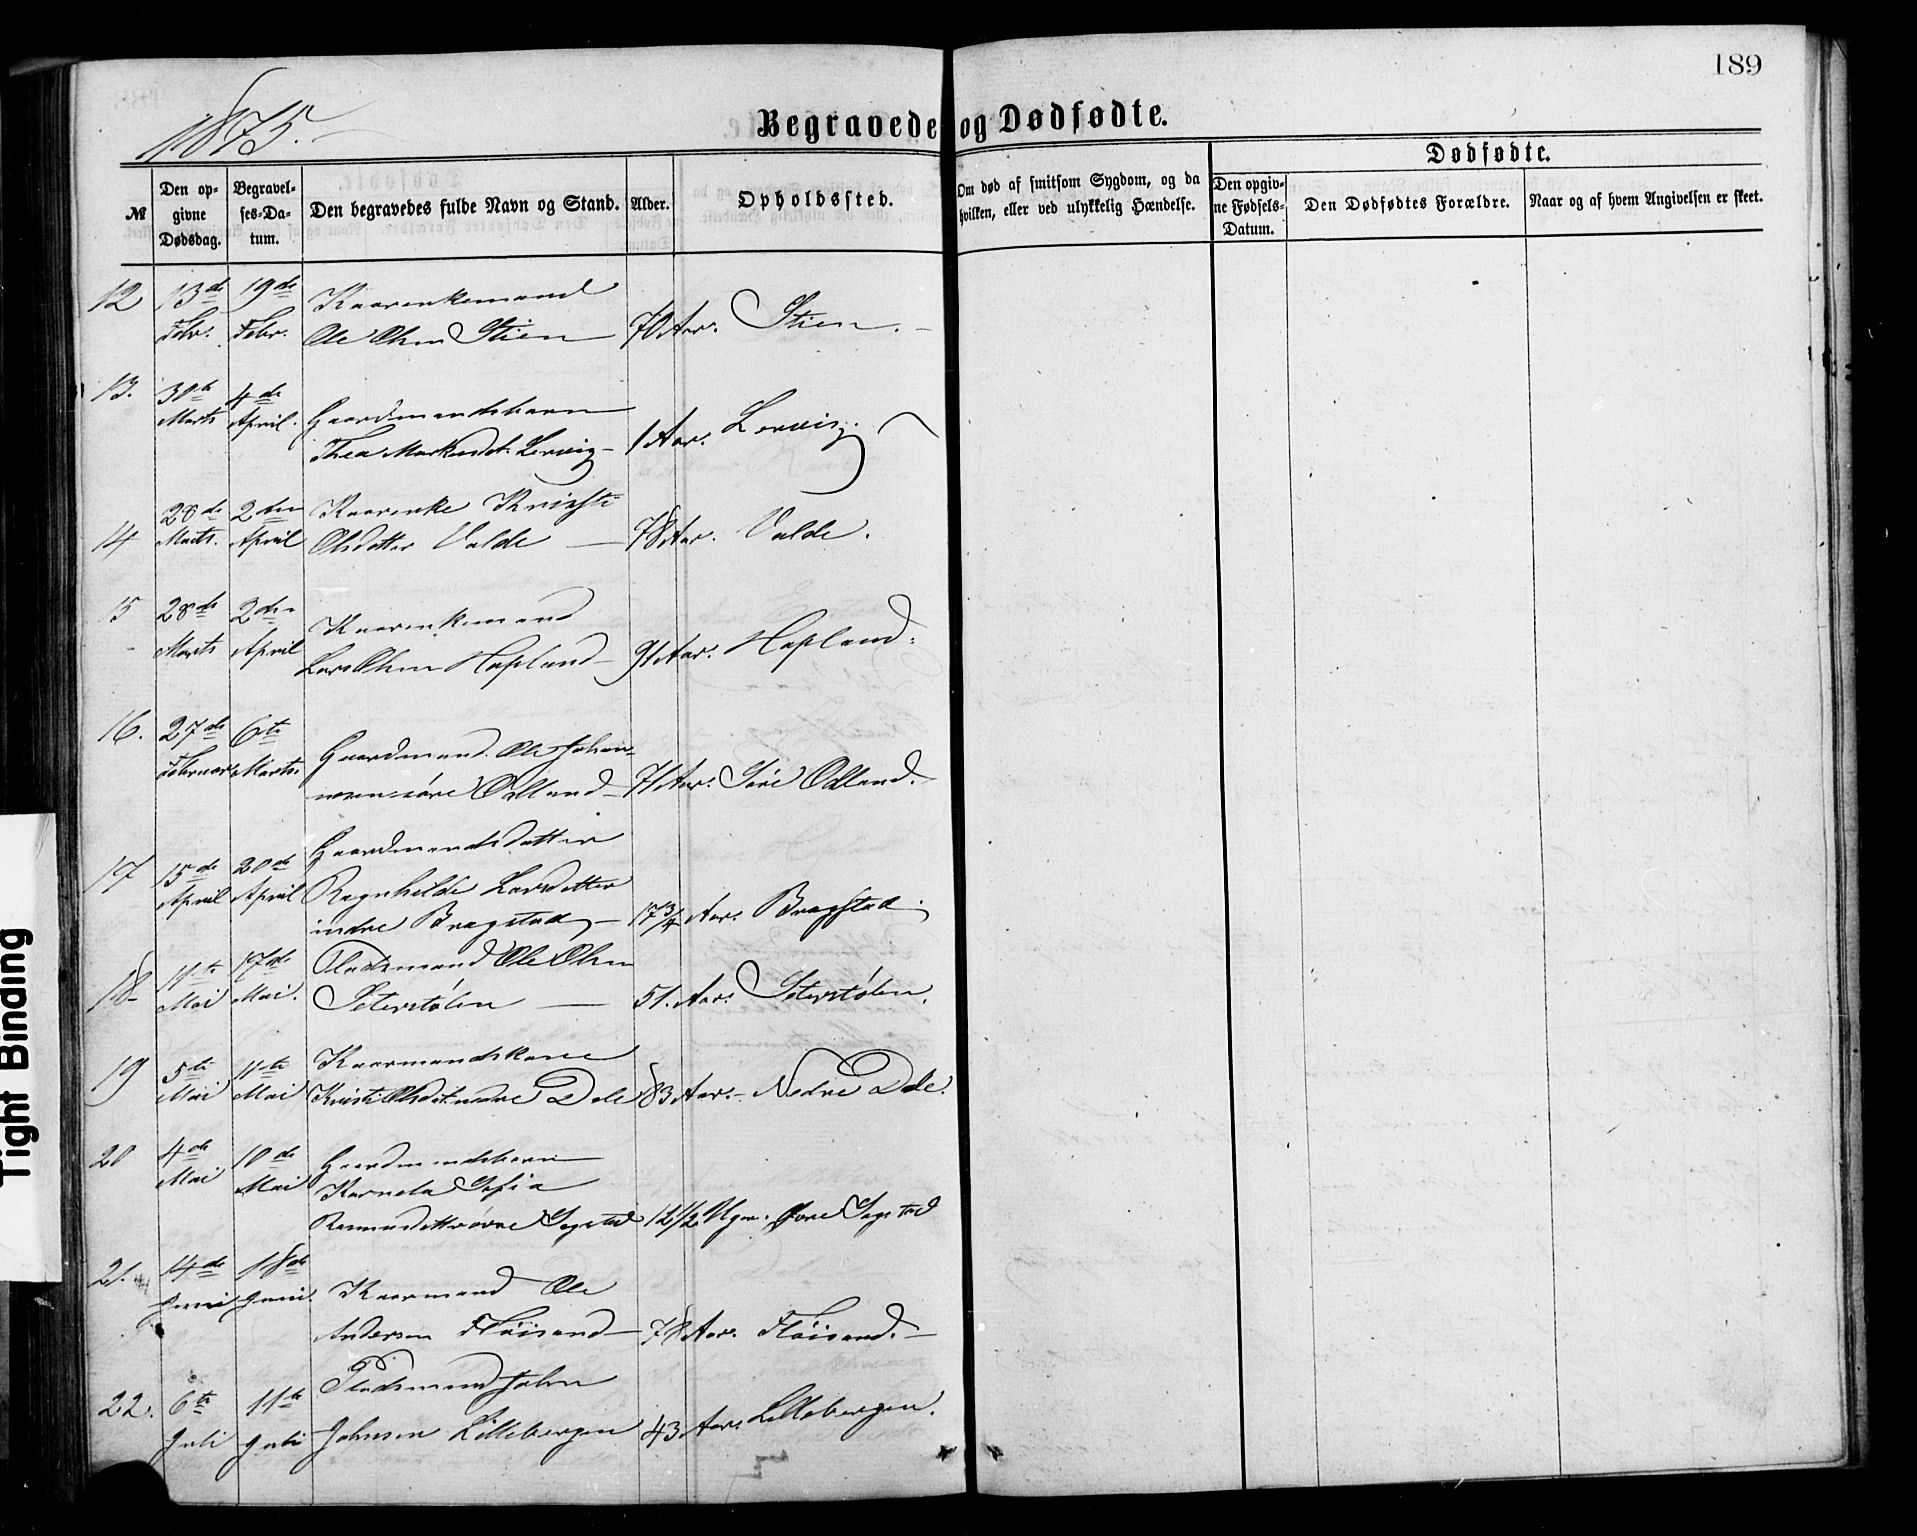 189
1875.
Begravede og Dødfødte.
Dødfødte.
№
Den op-
givne
Dødsdag.
Begravel-
ses-Da-
tum.
Den begravedes fulde Navn og Stand.
Alder.
Opholdssted.
Om død af smitsom Sygdom, og da
hvilken, eller ved ulykkelig Hændelse.
Den opgiv-
ne Fødsels-
Datum.
Den Dødfødtes Forældre.
Naar og af hvem Angivelsen er skeet.
12 13de 19de
Febr. Febr.
Kaarenkemand
Ole Olsen Stien 70 Aar. Stien.
13. 30te 4de
Marts April.
Gaardmandsbarn
Thea Markusdt. Lervig 1 Aar. Lervig.
28de 2den Kaarenke Kristi
14 Marts. April Olsdatter Valde 78 Aar. Valde.
15 28de 2den
Marts April
Kaarenkemand
Lars Olsen Hapland 91 Aar. Hapland.
16. 27de 6te
Februar Marts.
Gaardmand Ole Johan-
nesen søre Odland 71 Aar. Søre Odland.
Gaardmandsdatter
17 15de 20de
April April
Ragnhilde Larsdatter
indre Bragstad 17 3/4 Aar. Bragstad.
18 11te 17de Pladsmand Ole Olsen
Mai Mai. Seterstølen 51. Aar. Seterstølen.
19 5te 11te Kaarmandskone
Mai Mai Kristi Olsdt. nedre Dale 83 Aar. Nedre Dale.
20 4de 10de Gaardmandsbarn
Mai Mai Karnela Sofia
Rasmusdatter øvre Segstad 12 1/2 Uger. Øvre Segstad
21. 14de 18de
Juni Juni. Kaarmand Ole
Andersen Fløisand 78 Aar. Fløisand.
Pladsmand John
22. 6te 11te
Juli Juli Johnsen Lillebergen 43 Aar. Lillebergen.
Tight Binding